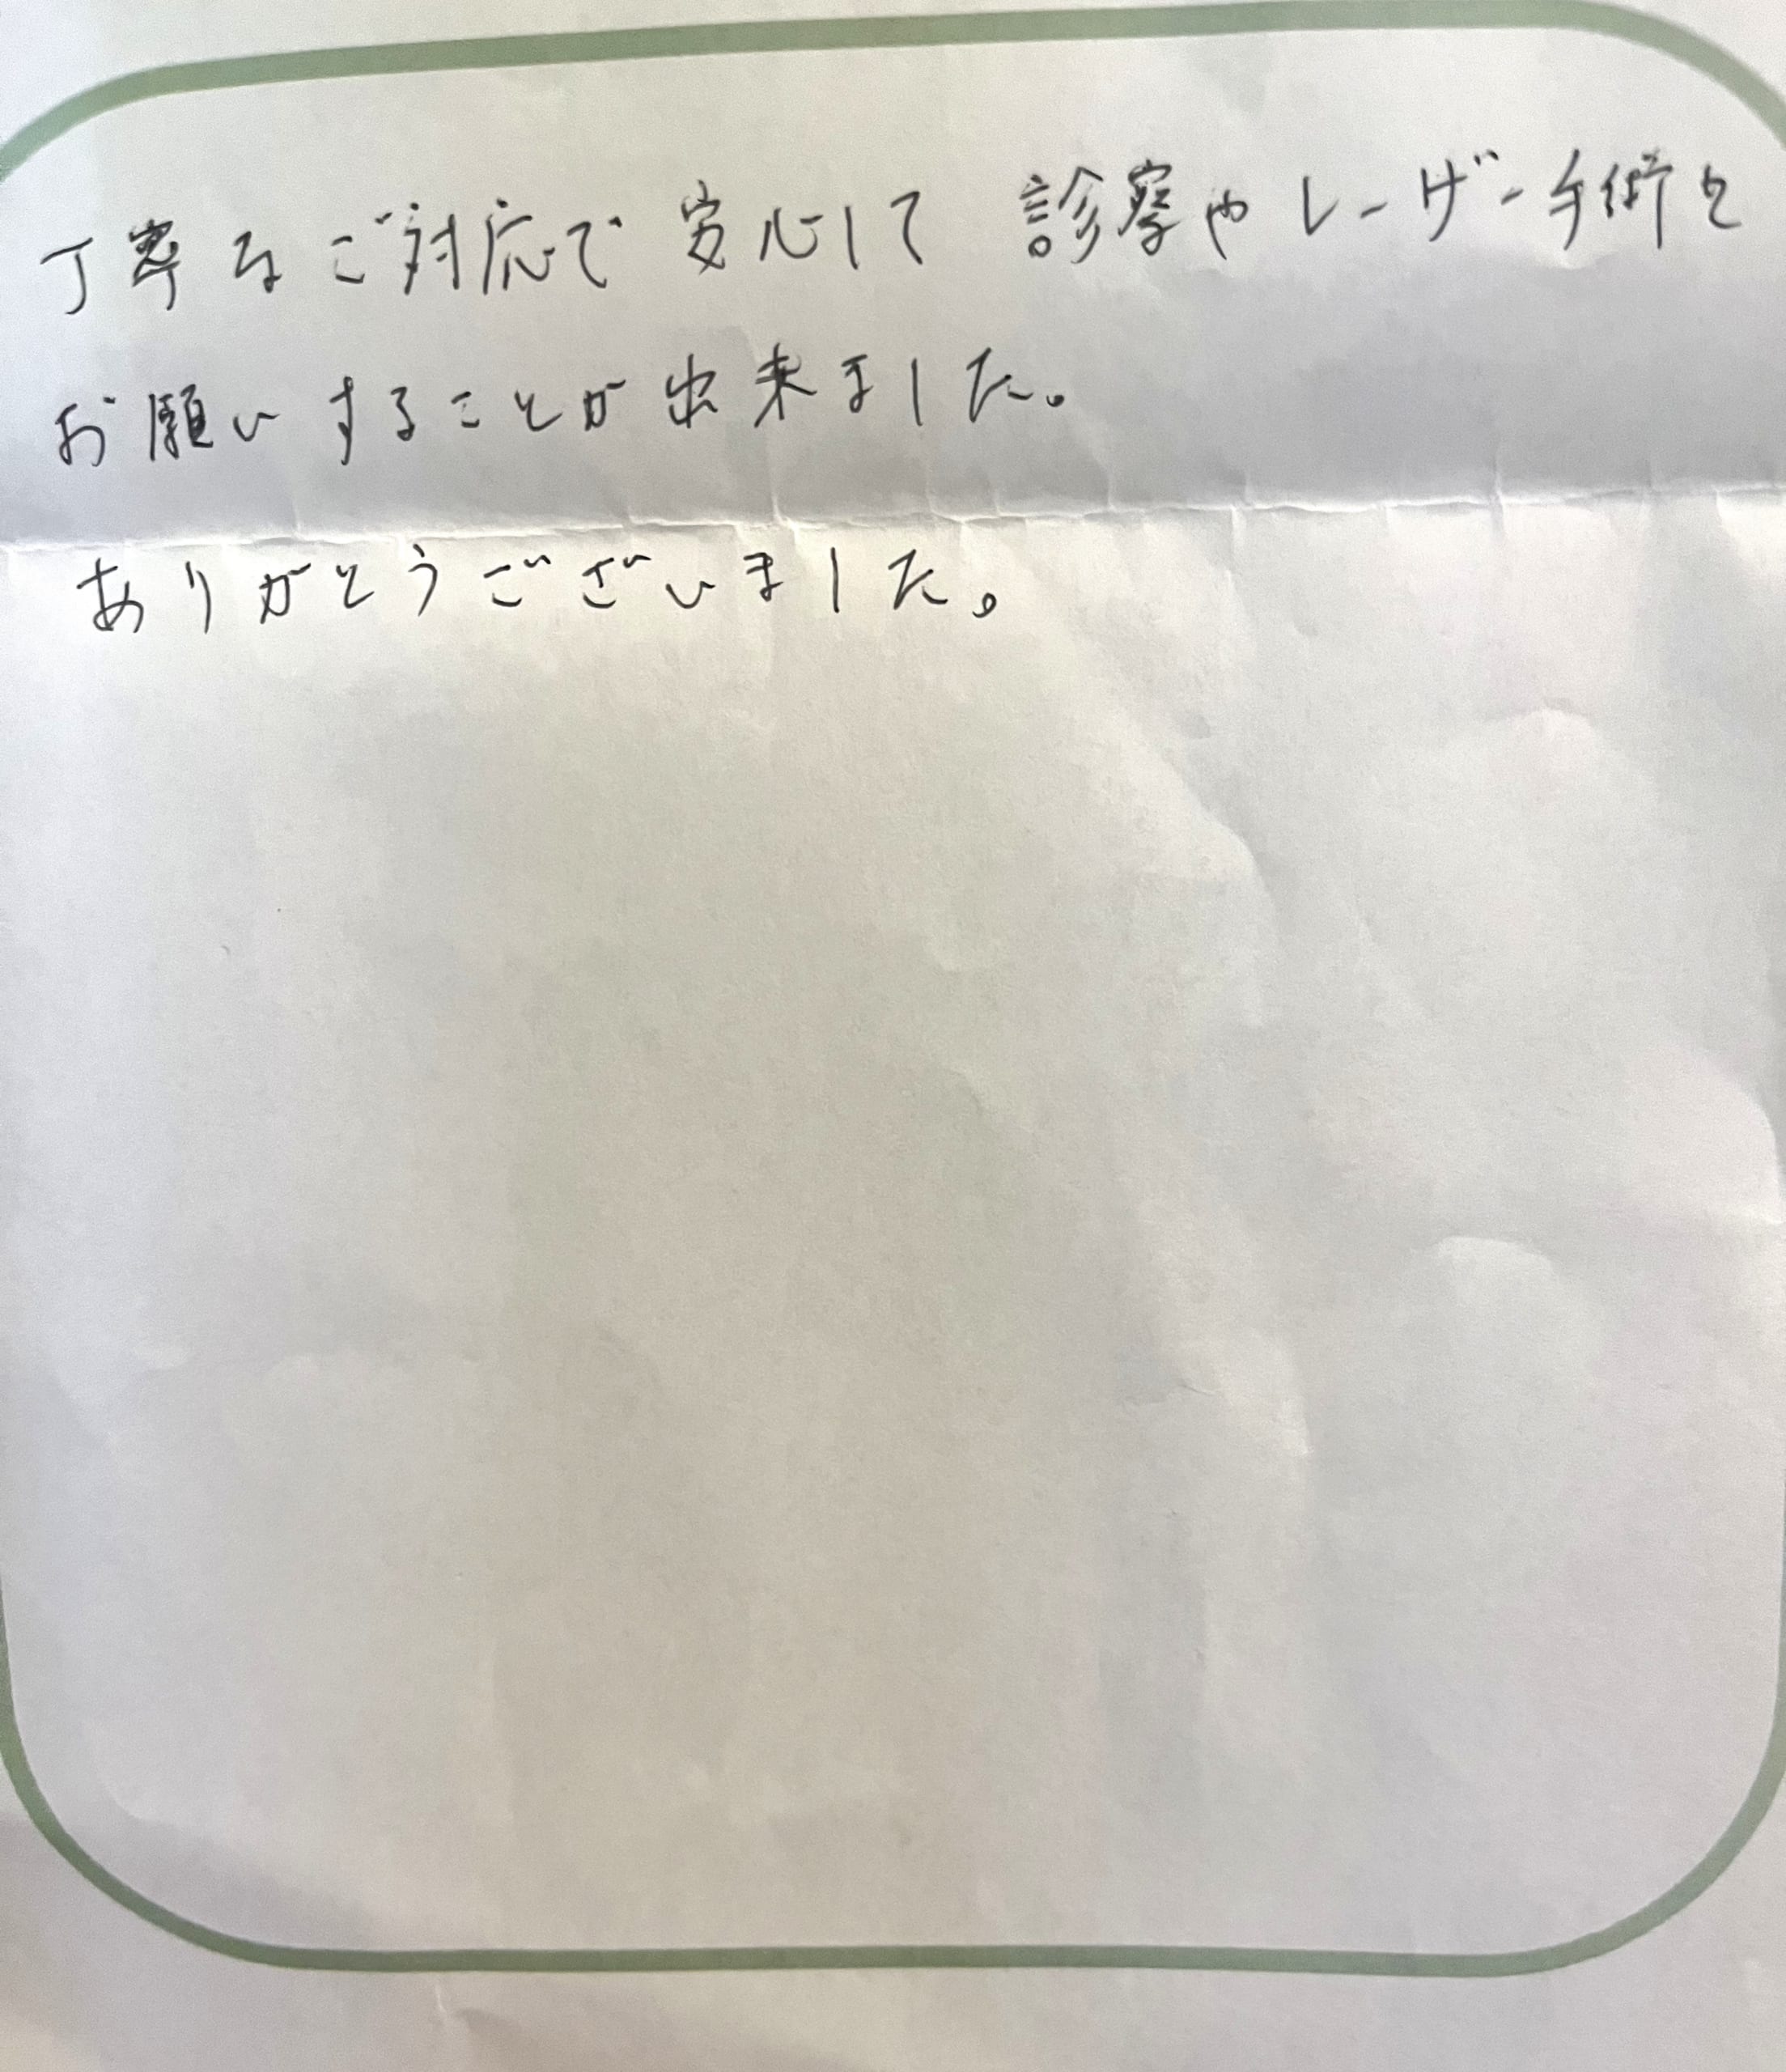 丁寧なご対応で安心して診察やレーザー手術を
お願いすることが出来ました。
ありがとうございました。